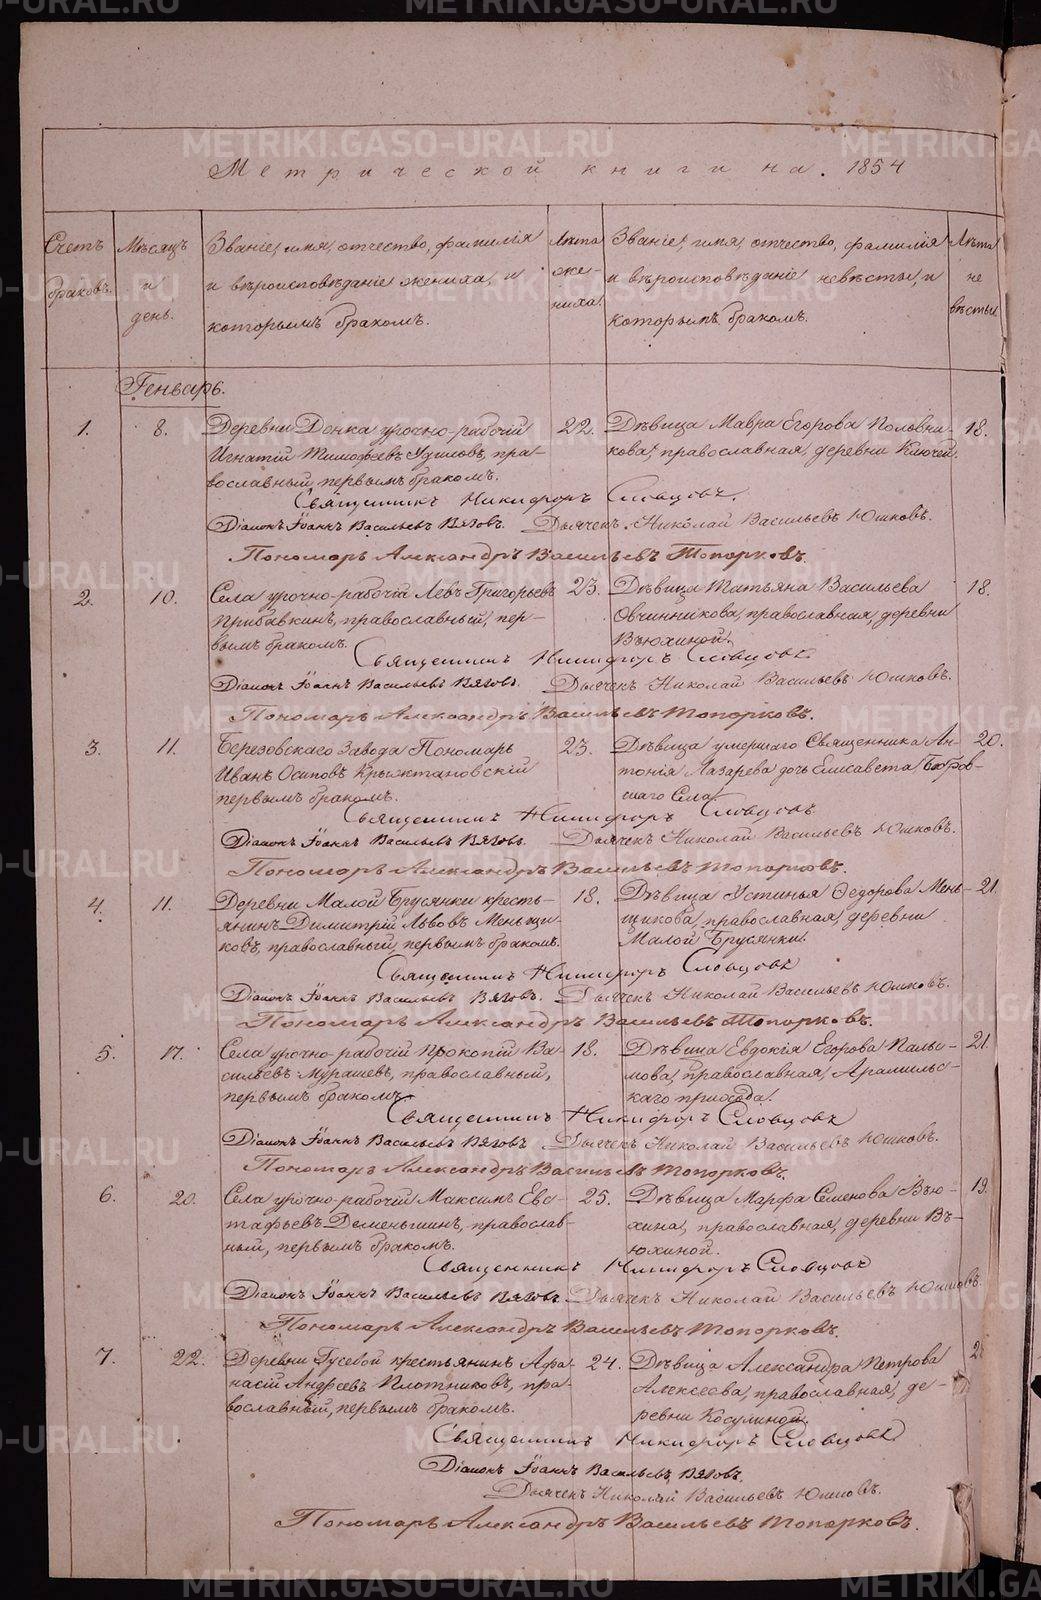 Метрической книги на 1854
Счетъ
браковъ.
Мѣсяцъ
и
день.
Званіе, имя, отчество, фамилія
и вѣроисповѣданіе жениха, и
которымъ бракомъ.
Лѣта
же-
ниха.
Званіе, имя, отчество, фамилія
и вѣроисповѣданіе невѣсты, и
которымъ бракомъ.
Лѣта
не
вѣсты.
Генварь.
1.
8.
Деревни Донка урочно-рабочій
Игнатій Тимофеевъ, пра-
вославный, первымъ бракомъ.
22.
Дѣвица Мавра Егорова Половни-
кова, православная, деревни Ключей.
18.
Священникъ Никифоръ Словцовъ.
Діаконъ Іоаннъ Васильевъ Вяговъ. Дьячекъ Николай Васильевъ Юшковъ.
Пономарь Александръ Васильевъ Топорковъ.
2.
10.
Села урочно-рабочій Левъ Григорьевъ
Прибавкинъ, православный, пер-
вымъ бракомъ.
23.
Дѣвица Татьяна Васильева
Овчинникова, православная, деревни
Вьюхиной.
18.
Священникъ Никифоръ Словцовъ
Діаконъ Іоаннъ Васильевъ Вяговъ. Дьячекъ Николай Васильевъ Юшковъ.
Пономарь Александръ Васильевъ Топорковъ.
3.
11.
Березовскаго Завода Пономарь
Иванъ Осиповъ Крыжтановскій
первымъ бракомъ.
23.
Дѣвица умершаго Священника Ан-
тонія Лазарева дочь Елисавета Бобров-
скаго Села.
20.
Священникъ Никифоръ Словцовъ
Діаконъ Іоаннъ Васильевъ Вяговъ. Дьячекъ Николай Васильевъ Юшковъ.
Пономарь Александръ Васильевъ Топорковъ.
4.
11.
Деревни Малой Брусянки кресть-
янинъ Димитрій Львовъ Меньщи-
ковъ, православный, первымъ бракомъ.
18.
Дѣвица Устинья Федорова Мень-
щикова, православная, деревни
Малой Брусянки.
21.
Священникъ Никифоръ Словцовъ
Діаконъ Іоаннъ Васильевъ Вяговъ. Дьячекъ Николай Васильевъ Юшковъ.
Пономарь Александръ Васильевъ Топорковъ.
5.
17.
Села урочно-рабочій Прокопій Ва-
сильевъ Мурашевъ, православный,
первымъ бракомъ.
18.
Дѣвица Евдокія Егорова Пальи-
мова, православная, Арамильс-
каго прихода.
21.
Священникъ Никифоръ Словцовъ
Діаконъ Іоаннъ Васильевъ Вяговъ Дьячекъ Николай Васильевъ Юшковъ.
Пономарь Александръ Васильевъ Топорковъ.
6.
20.
Села урочно-рабочій Максимъ Евс-
тафьевъ Деменьшинъ, православ-
ный, первымъ бракомъ.
25.
Дѣвица Марфа Семенова Вью-
хина, православная, деревни Вь-
юхиной.
19.
Священникъ Никифоръ Словцовъ
Діаконъ Іоаннъ Васильевъ Вяговъ. Дьячекъ Николай Васильевъ Юшковъ.
Пономарь Александръ Васильевъ Топорковъ.
7.
22.
Деревни Гусевой крестьянинъ Афа-
насій Андреевъ Плотниковъ, пра-
вославный, первымъ бракомъ.
24.
Дѣвица Александра Петрова
Алексеева, православная, де-
ревни Косулиной.
Священникъ Никифоръ Словцовъ
Діаконъ Іоаннъ Васильевъ Вяговъ.
Дьячекъ Николай Васильевъ Юшковъ.
Пономарь Александръ Васильевъ Топорковъ.
METRIKI.GASO-URAL.RU